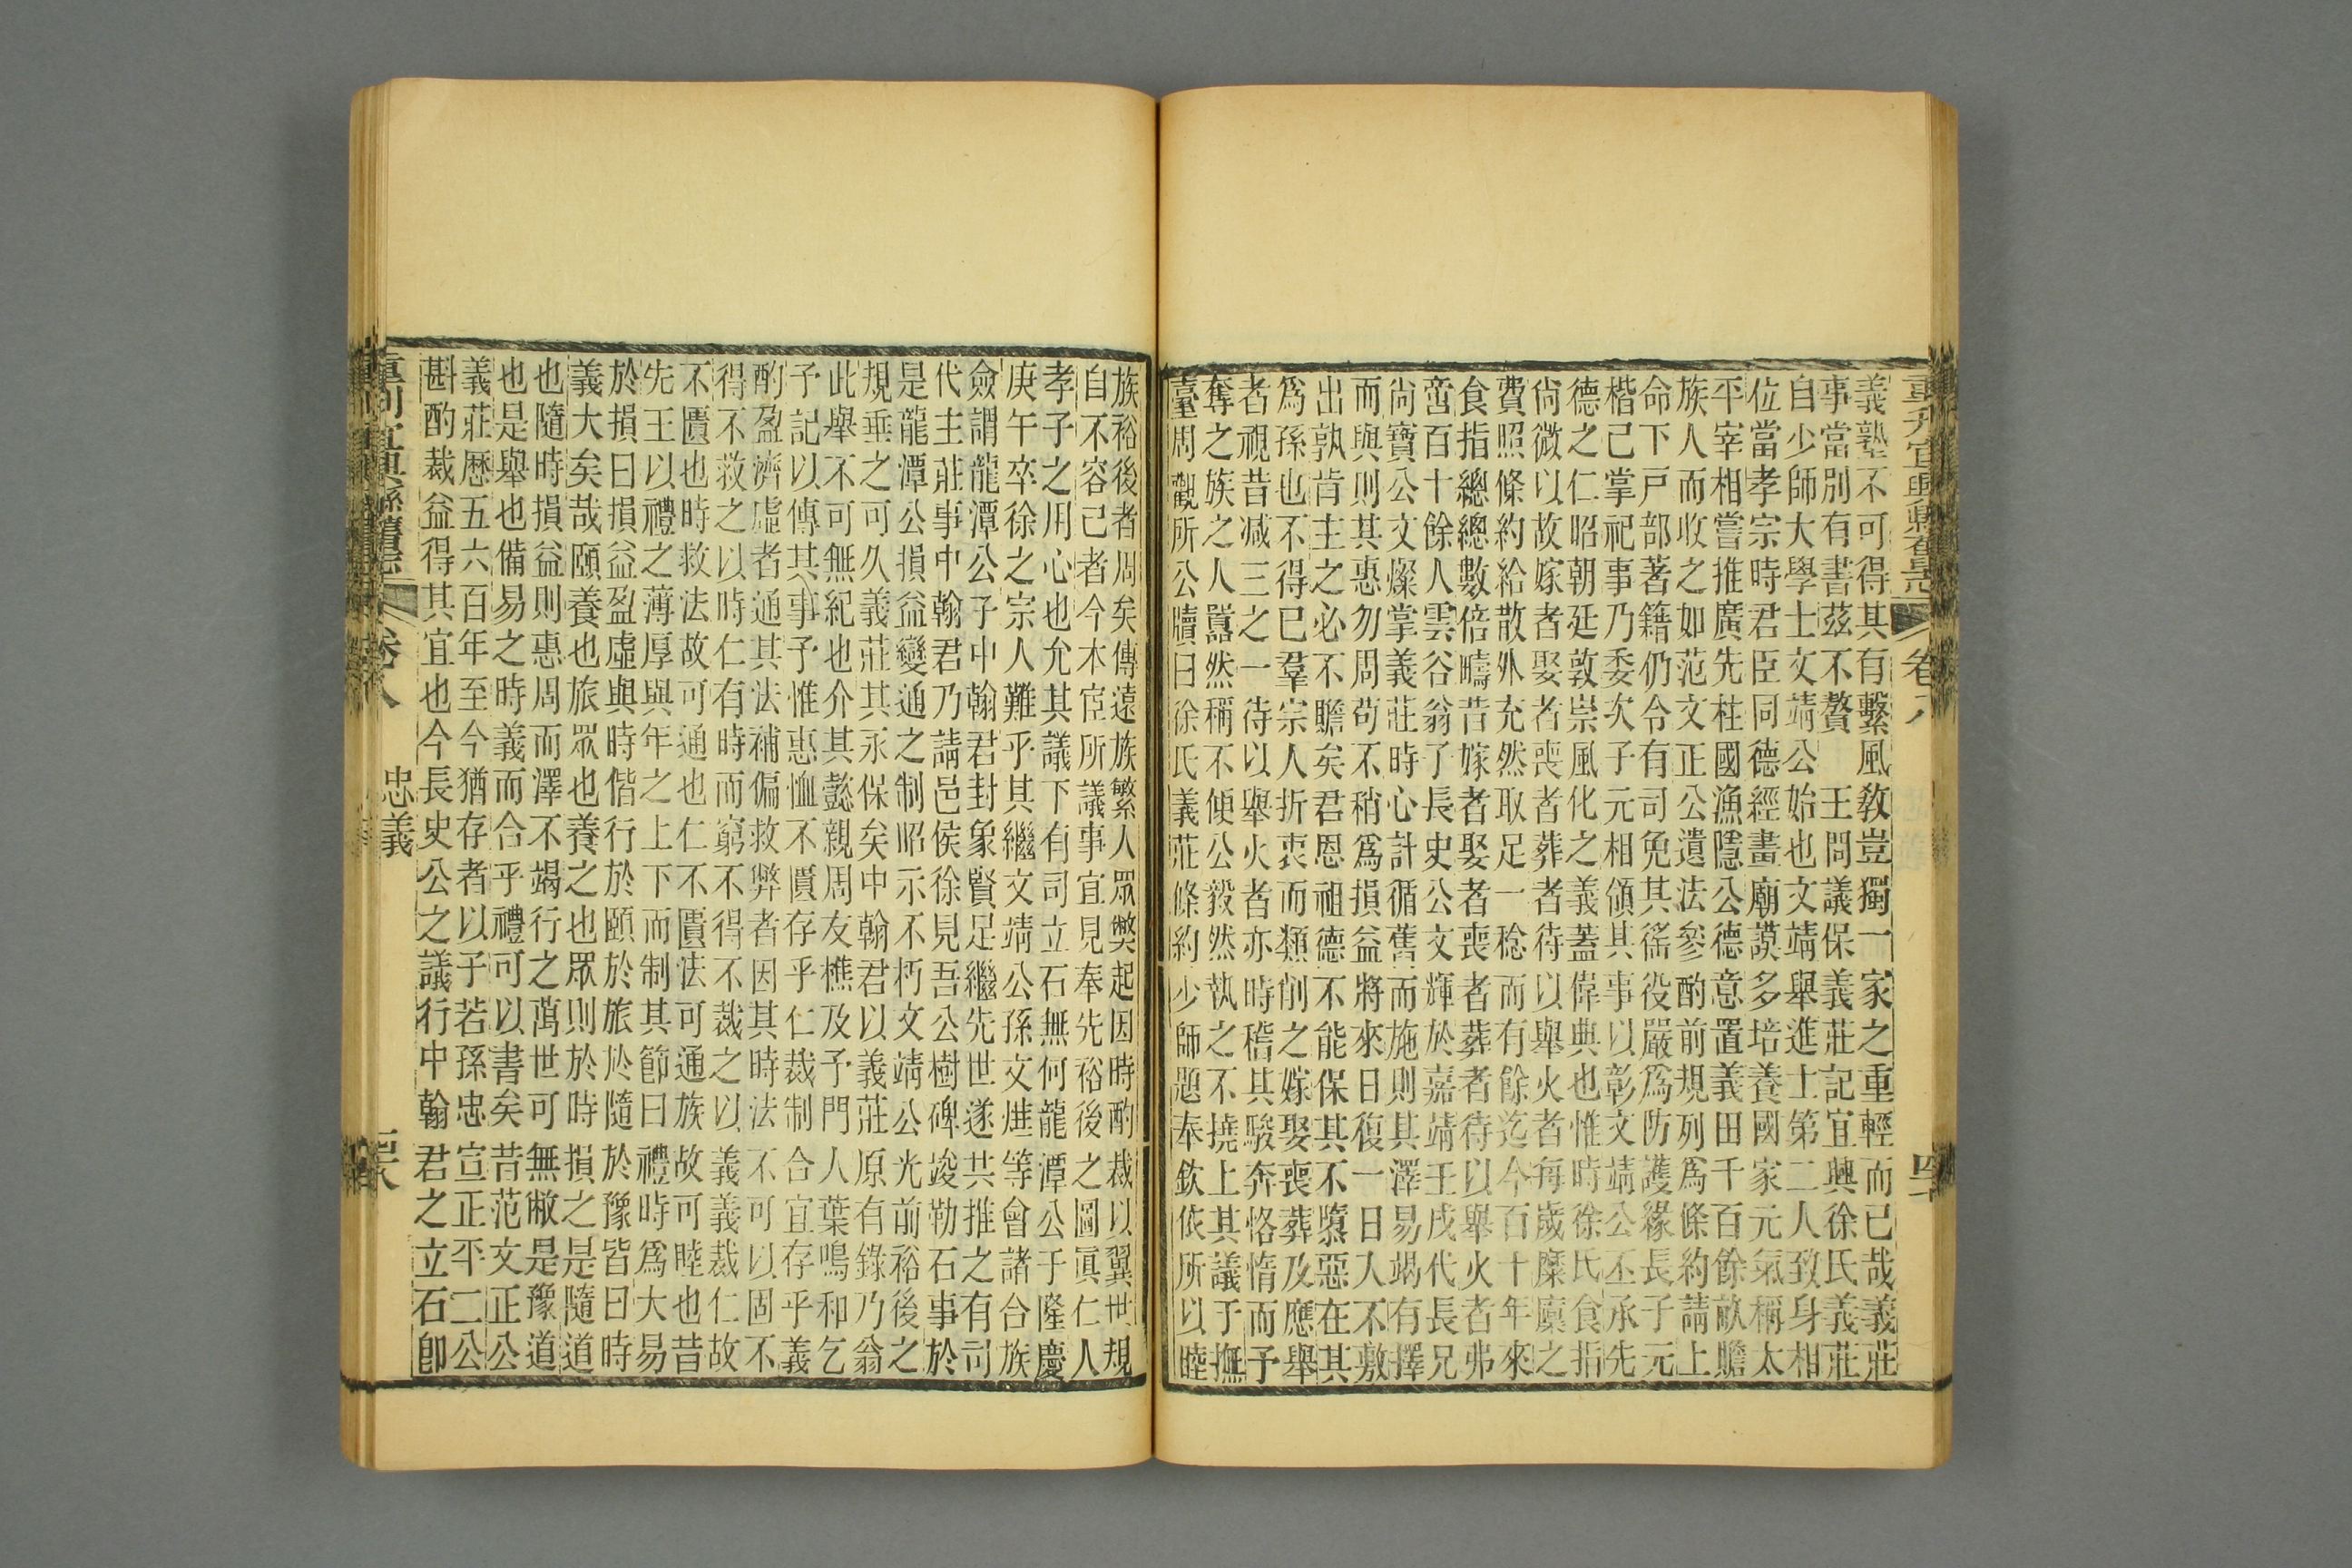 義塾不可得其有繫風敎豈獨一家之重輕而已哉義莊
事當別有書茲不贅 王問議保義莊記宜興徐氏義莊
自少師大學士文靖公始也文靖舉進士第二人致身相
位當孝宗時君臣同德經畫廟謨多培養國家元氣稱太
平宰相嘗推廣先柱國漁隱公德意置義田千百餘畝贍
族人而收之如范文正公遺法參酌前規列爲條約請上
命下戸部著籍仍令有司免其徭役嚴爲防護緣長子元
楷已掌祀事乃委次子元相領其事以彰文靖公丕承先
德之仁昭朝廷敦崇風化之義蓋偉典也惟時徐氏食指
尙微以故嫁者娶者喪者葬者待以舉火者每歲糜廩之
費照條約給散外充然取足一稔而有餘迄今百十年來
食指總總數倍疇昔嫁者娶者喪者葬者待以舉火者弗
啻百十餘人雲谷翁了長史公文輝於嘉靖壬戌代長兄
尙寶公文燦掌義莊時心計循舊而施則其澤易竭有擇
而與則其惠勿周苟不稍爲損益將來日復一日人不敷
出孰肯主之必不贍矣君恩祖德不能保其不隳惡在其
爲孫也不得已羣宗人折衷而類削之嫁娶喪葬及應舉
者視昔减三之一待以舉火者亦時稽其駿奔恪惰而予
奪之族之人囂然稱不便公毅然執之不撓上其議于撫
臺周觀所公牘曰徐氏義莊條約少師題奉欽依所以睦
重刋宜興縣舊志 卷八 四十
族裕後者周矣傳遠族繁人眾獘起因時酌裁以翼世規
自不容已者今本宦所議事宜見奉先裕後之圖眞仁人
孝子之用心也允其議下有司立石無何龍潭公于隆慶
庚午卒徐之宗人難乎其繼文靖公孫文煃等會諸合族
僉謂龍潭公子中翰君封象賢足繼先世遂共推之有司
代主莊事中翰君乃請邑侯徐見吾公樹碑竣勒石事於
是龍潭公損益變通之制昭示不朽文靖公光前裕後之
規垂之可久義莊其永保矣中翰君以義莊原有錄乃翁
此舉不可無紀也介其懿親周友樵及予門人葉鳴和乞
予記以傳其事予惟惠恤不匱存乎仁裁制合宜存乎義
酌盈濟虛者通其法補偏救弊者因其時法不可以固不
得不救之以時仁有時而窮不得不裁之以義義裁仁故
不匱也時救法故可通也仁不匱法可通族故可睦也昔
先王以禮之薄厚與年之上下而制其節曰禮時爲大易
於損曰損益盈虛與時偕行於頤於旅於隨於豫皆曰時
義大矣哉頤養也旅眾也養之也眾則於時損之是隨道
也隨時損益則惠周而澤不竭行之萬世可無敝是豫道
也是舉也備易之時義而合乎禮可以書矣昔范文正公
義莊歴五六百年至今猶存者以子若孫忠宣正平二公
斟酌裁益得其宜也今長史公之議行中翰君之立石卽
重刋宜興縣舊志 卷八 忠義